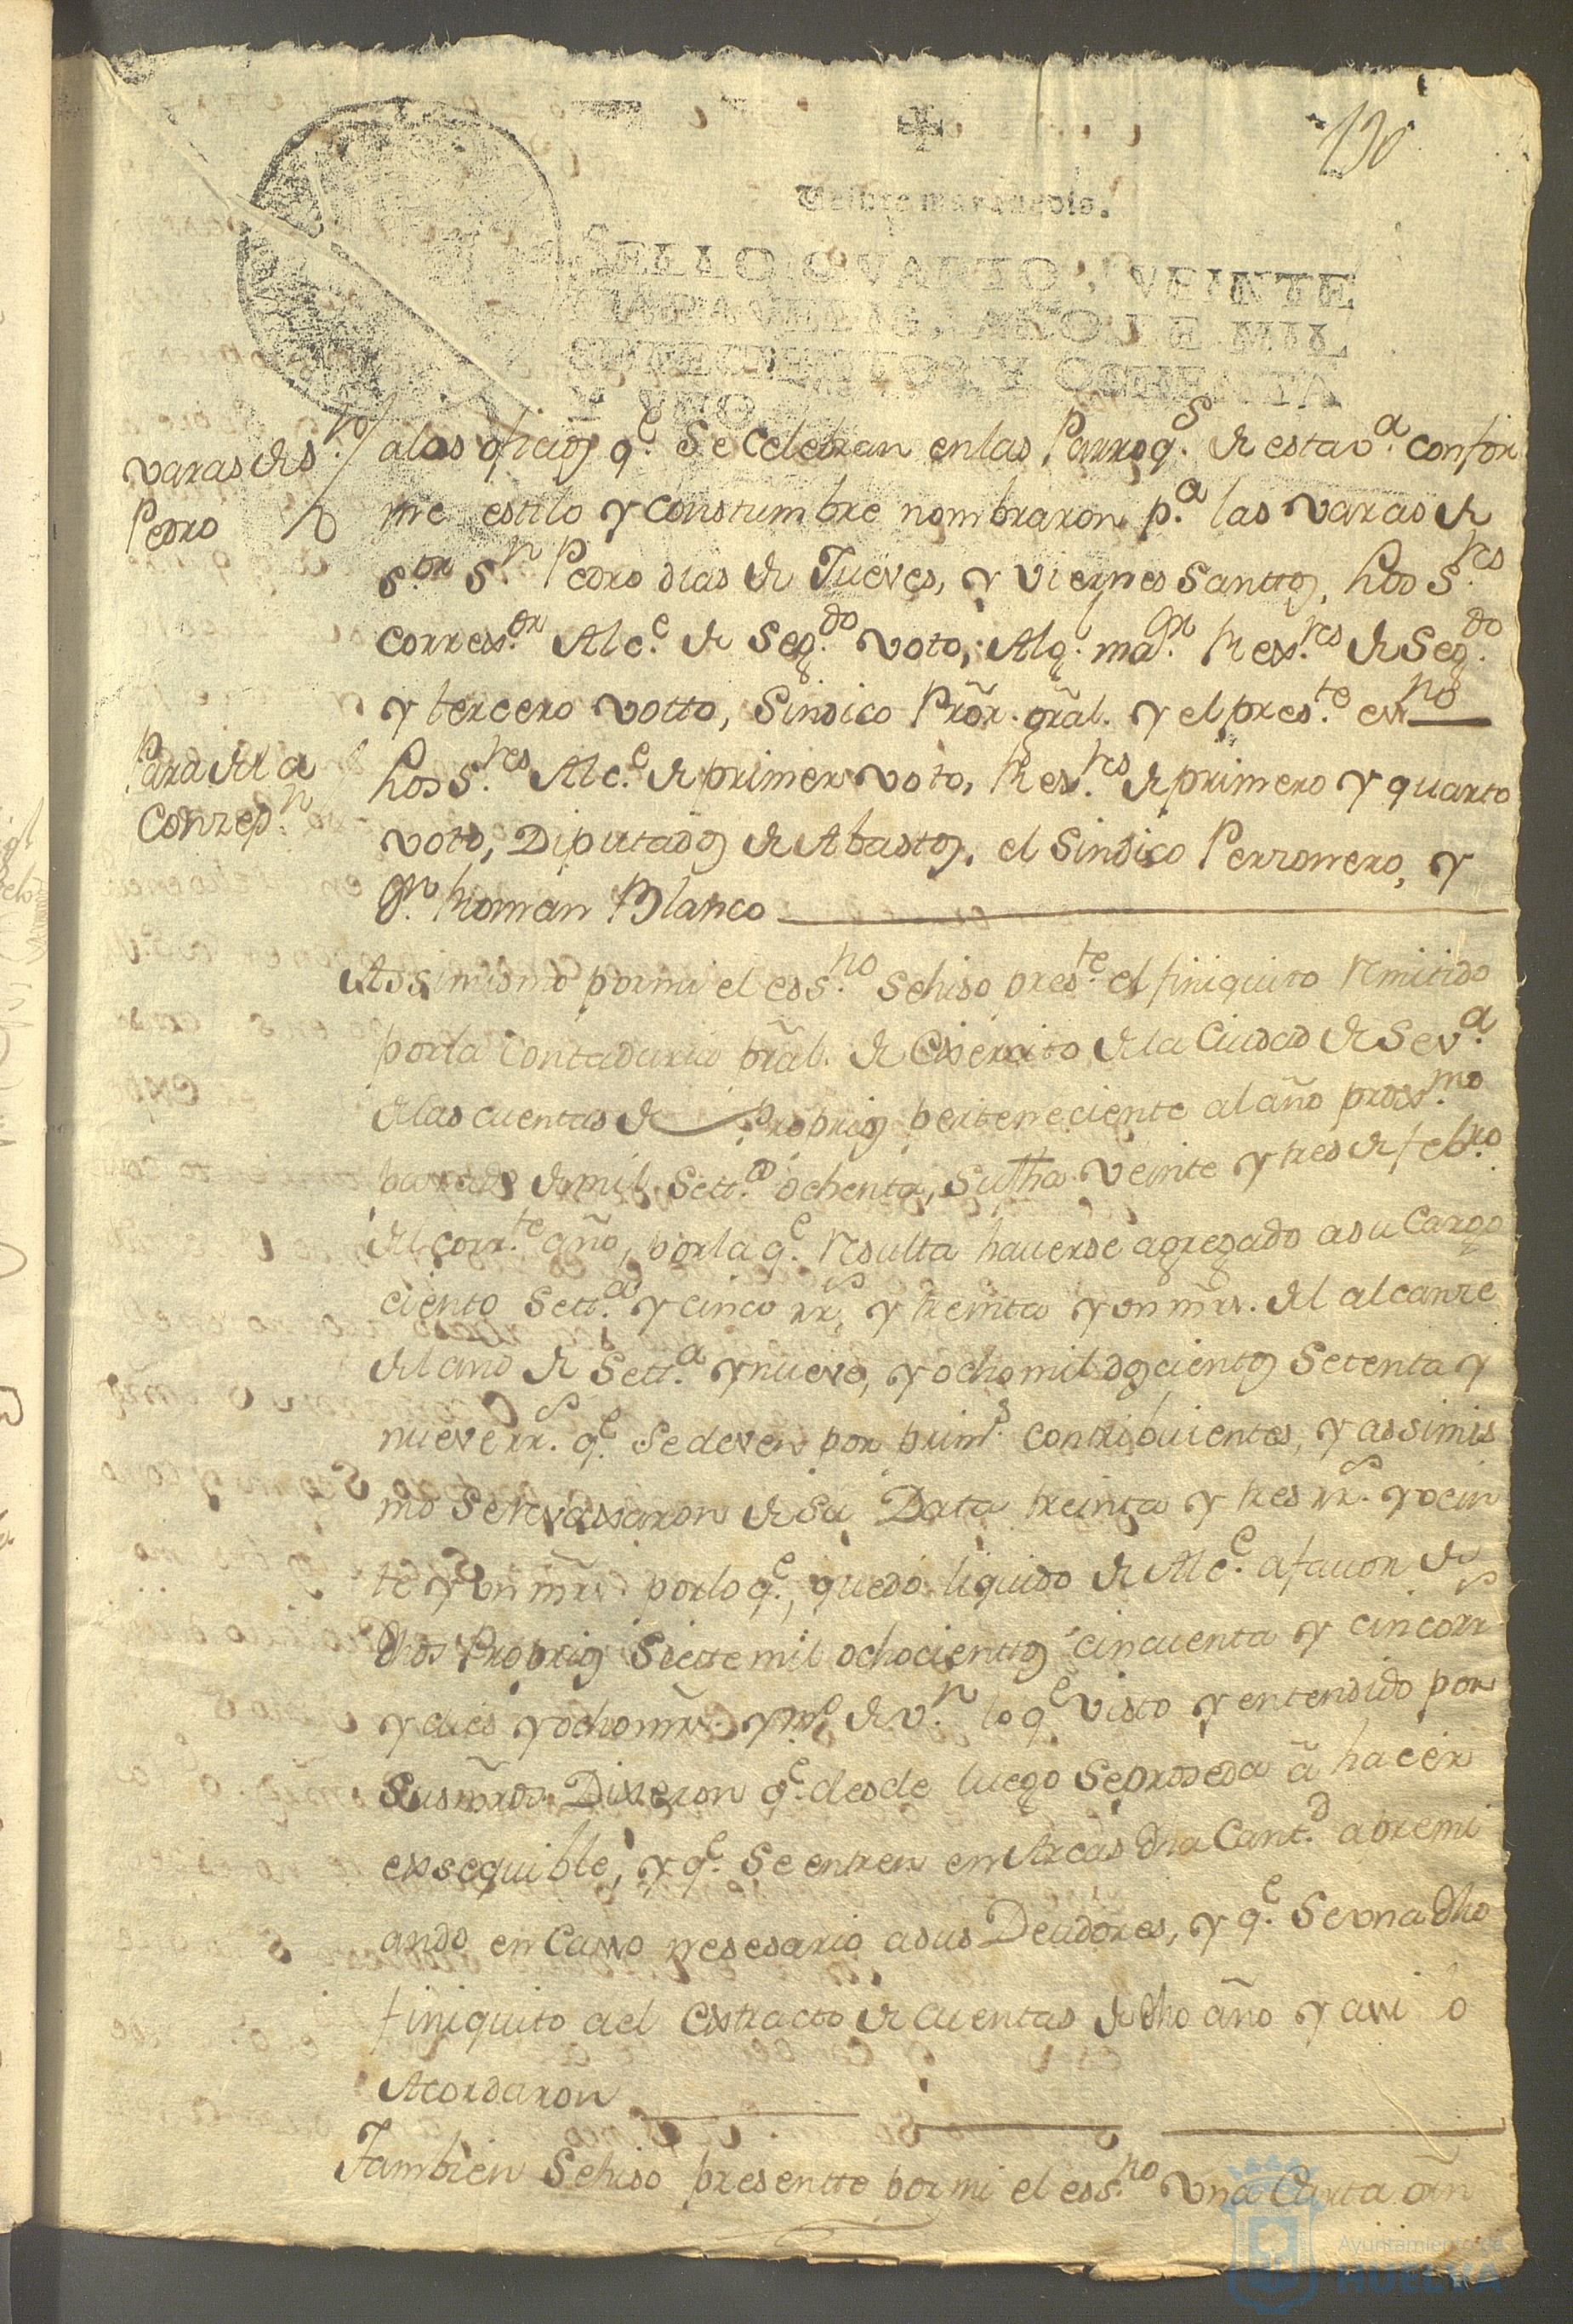 130
Veinte maravedis.
SELLO QVARTO, VEINTE
MARAVEDIS, AÑO DE MIL
SETECIENTOS Y OCHENTA
Y VNO.
varas de s.r
Pedro
a los oficios q.e Se Celebran en las Parroq.s de esta v.a confor
me estilo y Constumbre nombraron p.a las varas de
s.or S.n Pedro dias de Jueves, y Viernes Santtos, los S.res
Correx.or Alc.e de Seg.do voto, Alg.l ma.or Rex.res de Seg.do
y tercero votto, Sindico Prõr. grãl. y el pres.te esn.no
Para de la
Conzep.n
los S.res Alc.e de primer voto, Rex.res de primero y quarto
voto, Diputados de Abastos, el Sindico Perzonero, y
D.n Roman Blanco
Assimismo por mi el ess.no se hiso pres.te el finiquito remitido
por la Contaduria Grãl. de Exercito de la Ciudad de Sev.a
de las cuentas de Proprios perteneciente al año prox.mo
pasado de mil Sett.os ochenta, su fha veinte y tres de feb.ro
del corr.te año, por la q.e resulta haverse agregado a su Cargo
ciento Sett.a y cinco rr.s y treinta y un mrs. del alcanze
del año de Sett.a y nueve, y ocho mil doscientos Setenta y
nueve rr.s q.e Se deven por prim.s contribuientes, y assimis
mo Se revaxaron de Su Data treinta y tres rr.s y vein
te y un mrs. por lo q.e, quedó liquido de Alc.e a favor de
dhos Proprios Siette mil ochocienttos cincuenta y cinco rr.s
y dies y ocho mrs. y m.o de v.n lo q.e visto y entendido por
Sus mrds. Dixeron q.e desde luego Se proseda à hacer
exsequible, y q.e Se entren en Arcas dha Cant.d apremi
ando en Casso nesesario a sus Deudores, y q.e Se una dho
finiquito a el Extracto de Cuentas de dho año y assi lo
Acordaron
Tambien Se hiso presentte por mi el ess.no una Carta orn
Ayuntamiento de
HUELVA